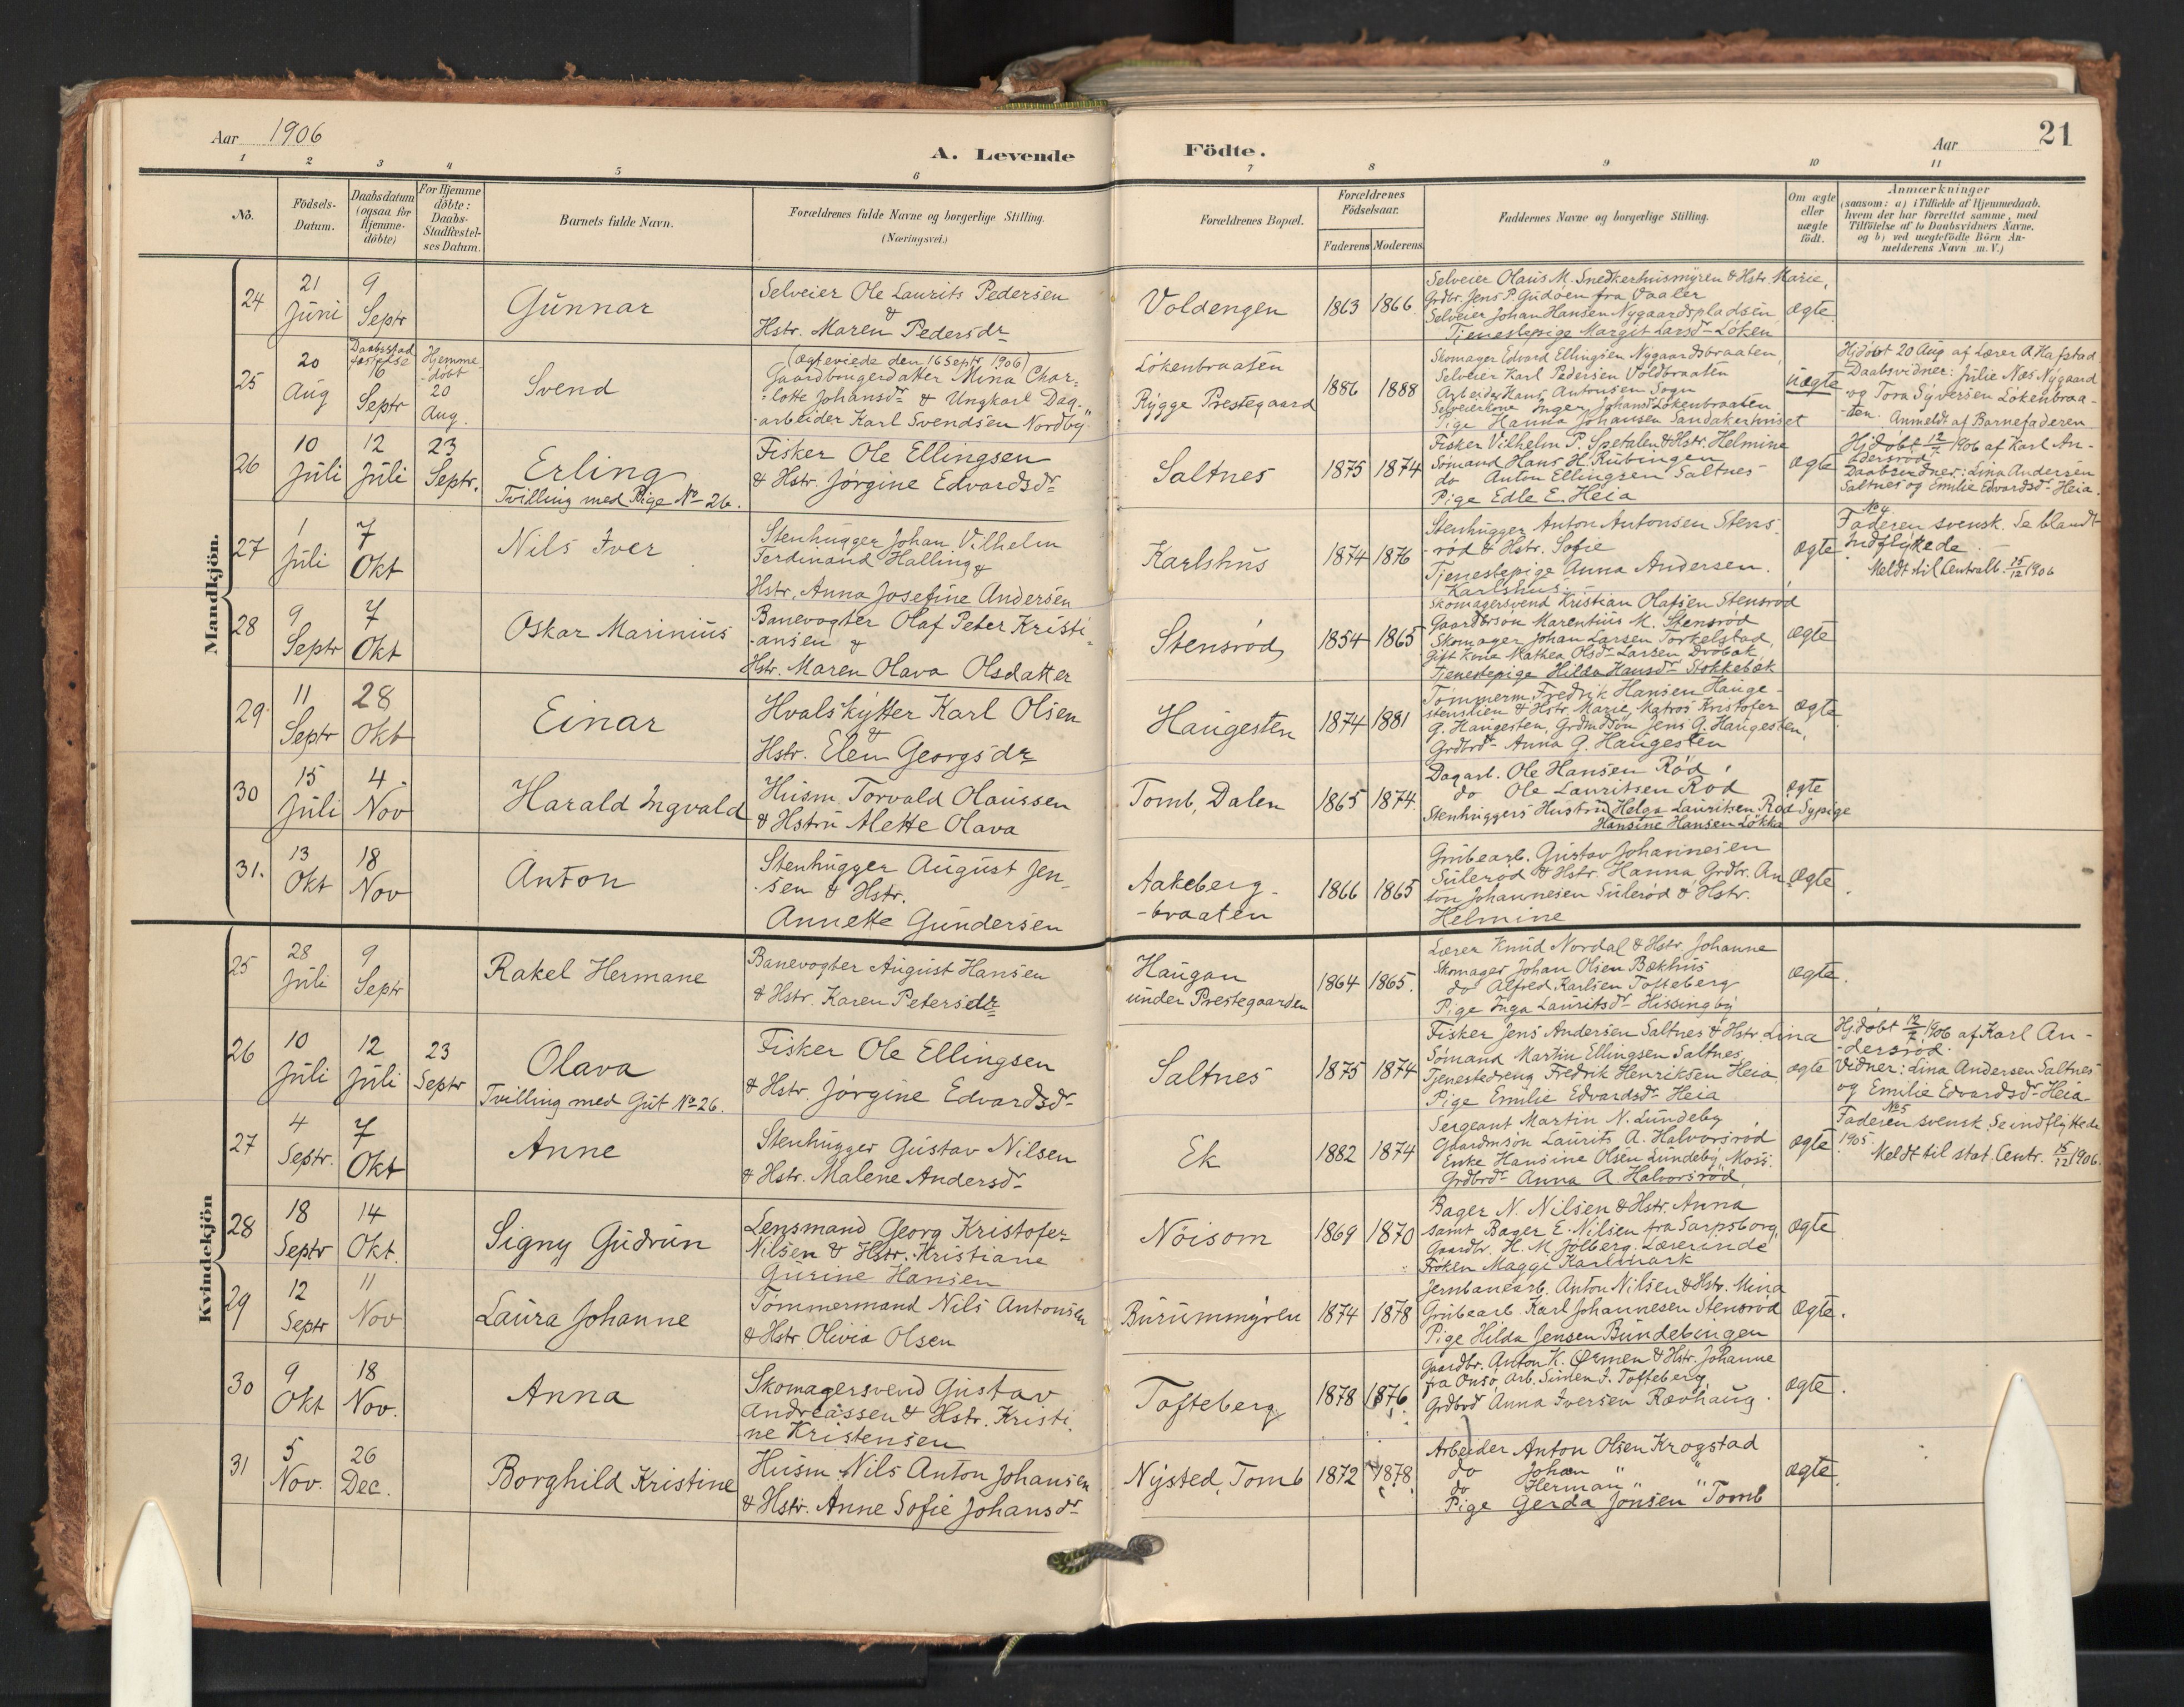 Aar 1906
A. Levende Födte.
Aar 21
1 2 3 4 5 6 7 8 9 10 11
No.
Födsels-Datum.
Daabsdatum (ogsaa for Hjemme-döbte)
For Hjemme döbte: Daabs-Stadfæstel-ses Datum.
Barnets fulde Navn.
Forældrenes fulde Navne og borgerlige Stilling.
(Næringsvei.)
Forældrenes Bopæl.
Forældrenes Födselsaar.
Faderens Moderens
Faddernes Navne og borgerlige Stilling.
Om ægte eller uægte födt.
Anmærkninger
(saasom: a) i Tilfælde af Hjemmedaab,
hvem der har forrettet samme, med
Tilföielse af to Daabsvidners Navne,
og b) ved uægtefödte Börn An-
melderens Navn m. V.)
Mandkjön.
24
21 Juni
9 Septr
Gunnar
Selveier Ole Laurits Pedersen
&
Hstr. Maren Pedersdr
Voldengen
1863 1866
Selveier Olaus M. Snedkerhusmyren & Hstr. Marie,
Grdbr. Jens P. Gudøen fra Vaaler
Selveier Johan Hansen Nygaardspladsen
Tjenestepige Margit Larsdr Løken
ægte
25
20 Aug
Daabsstadfæstelse 6 Septr
Hjemmedøbt 20 Aug.
Svend
(Ægteviede den 16 Septr 1906)
Gaardbrugerdatter Mina Char-
lotte Johansdr & Ungkarl Dag-
arbeider Karl Svendsen Nordby
Løkenbraaten
Rygge Prestegaard
1886 1888
Skomager Edvard Ellingsen Nygaardsbraaten,
Selveier Karl Pedersen Voldbraaten
Arbeider Hans Antonsen Sogn
Selveierkone Inger Johansdr Løkenbraaten
Pige Hanna Johansen Sandakerhuset
uægte
Hjdøbt 20 Aug af Lærer A Hafstad
Daabsvidner: Julie Næs Nygaard
og Tora Syversen Løkenbraa-
ten. Anmeldt af Barnefaderen
26
10 Juli
12 Juli
23 Septr.
Erling
Tvilling med Pige No 26.
Fisker Ole Ellingsen
& Hstr. Jørgine Edvardsdr
Saltnes
1875 1874
Fisker Vilhelm P. Spetalen & Hstr. Helmine
Sømand Hans H. Rubingen
do Anton Ellingsen Saltnes
Pige Edle E. Heia
ægte
Hjdøbt 12/7 1906 af Karl An-
dersrød
Daabsvidner: Lina Andersen
Saltnes og Emilie Edvardsdr Heia.
27
1 Juli
7 Okt
Nils Iver
Stenhugger Johan Vilhelm
Ferdinand Halling &
Hstr. Anna Josefine Andersen
Karlshus
1874 1876
Stenhugger Anton Antonsen Stens-
rød & Hstr. Sofie
Tjenestepige Anna Andersen.
Karlshus.
ægte
No 4
Faderen svensk. Se blandt
Indflyttede
Meldt til Centralb. 15/12 1906
28
9 Septr
7 Okt
Oskar Marinius
Banevogter Olaf Peter Kristi-
ansen &
Hstr. Maren Olava Olsdatter
Stensrød
1854 1865
Skomagersvend Kristian Olafsen Stensrød
Gaardbrsøn Marentius M. Stensrød
Skomager Johan Larsen Torkelstad,
Gift Kone Mathea Olsdr Larsen Drøbak,
Tjenestepige Hilda Hansdr Stokkebæk
ægte
29
11 Septr
28 Okt
Einar
Hvalskytter Karl Olsen
&
Hstr. Elen Georgsdr
Haugesten
1874 1881
Tømmerm. Fredrik Hansen Hauge-
stenstien & Hstr. Marie, Matros Kristofer
G. Haugesten, Grdmdsøn Jens G. Haugesten,
Grdbrdr Anna G. Haugesten
ægte
30
15 Juli
4 Nov
Harald Ingvald
Husm. Torvald Olaussen
& Hstru Alette Olava
Tomb, Dalen
1865 1874.
Dagarb. Ole Hansen Rød,
do Ole Lauritsen Rød
Stenhuggers Hustru Helga Lauritsen Rød Sypige
Hansine Hansen Løkka
ægte
31.
13 Okt
18 Nov
Anton
Stenhugger August Jen-
sen & Hstr.
Annette Gundersen
Aakeberg-
-braaten
1866 1865
Grubearb. Gustav Johannesen
Sulerød & Hstr. Hanna Grdbr. An-
ton Johannesen Sulerød & Hstr.
Helmine
ægte
Kvindekjön
25
28 Juli
9 Septr
Rakel Hermane
Banevogter August Hansen
& Hstr. Karen Petersdr
Haugan
under Prestegaarden
1864 1865.
Lærer Knud Nordal & Hstr. Johanne
Skomager Johan Olsen Bækhus
do Alfred Karlsen Tofteberg
Pige Inga Lauritsdr Hissingby
ægte.
26
10 Juli
12 Juli
23 Septr
Olava
Tvilling med Gut No 26.
Fisker Ole Ellingsen
& Hstr. Jørgine Edvardsdr
Saltnes
1875 1874
Fisker Jens Andersen Saltnes & Hstr. Lina
Sømand Martin Ellingsen Saltnes
Tjenestedreng Fredrik Henriksen Heia,
Pige Emilie Edvardsdr Heia
ægte
Hjdøbt 12/7 1906 af Karl An-
dersrød.
Vidner: Lina Andersen Saltnes
og Emilie Edvardsdr Heia
27
4 Septr.
7 Okt
Anne
Stenhugger Gustav Nilsen
& Hstr. Malene Andersdr
Ek
1882 1874
Sergeant Martin N. Lundeby
Gaardmsøn Laurits A. Halvorsrød
Enke Hansine Olsen Lundeby Moss.
Grdbrdr Anna A. Halvorsrød,
ægte
No 5
Faderen svensk. Se indflyttede
1905.
Meldt til stat. Centr. 15/12 1906.
28
18 Septr
14 Okt.
Signy Gudrun
Lensmand Georg Kristofer
Nilsen & Hstr. Kristiane
Gurine Hansen
Nöisom
1869 1870
Bager N. Nilsen & Hstr. Anna
samt Bager E. Nilsen fra Sarpsborg,
Gaardbr. H. M. Jølberg. Lærerinde
Frøken Maggi Karlmark
ægte
29
12 Septr
11 Nov
Laura Johanne
Tømmermand Nils Antonsen
& Hstr. Olivia Olsen
Burummyren
1874 1878
Jernbanearb. Anton Nilsen & Hstr. Mina
Grubearb. Karl Johannesen Stensrød
Pige Hilda Jensen Bundebingen
ægte.
30
9 Okt
18 Nov.
Anna
Skomagersvend Gustav
Andreassen & Hstr. Kristi-
ne Kristensen
Tofteberg
1878 1876.
Gaardbr. Anton K. Ørmen & Hstr. Johanne
fra Onsø, Arb. Simen J. Tofteberg,
Grdbrd Anna Iversen Rævhaug.
ægte.
31
5 Nov.
26 Dec.
Borghild Kristine
Husm. Nils Anton Johansen
& Hstr. Anne Sofie Johansdr
Nysted, Tomb
1872 1878.
Arbeider Anton Olsen Krogstad
do Johan " "
do Herman " "
Pige Gerda Jonsen " Tomb
ægte.